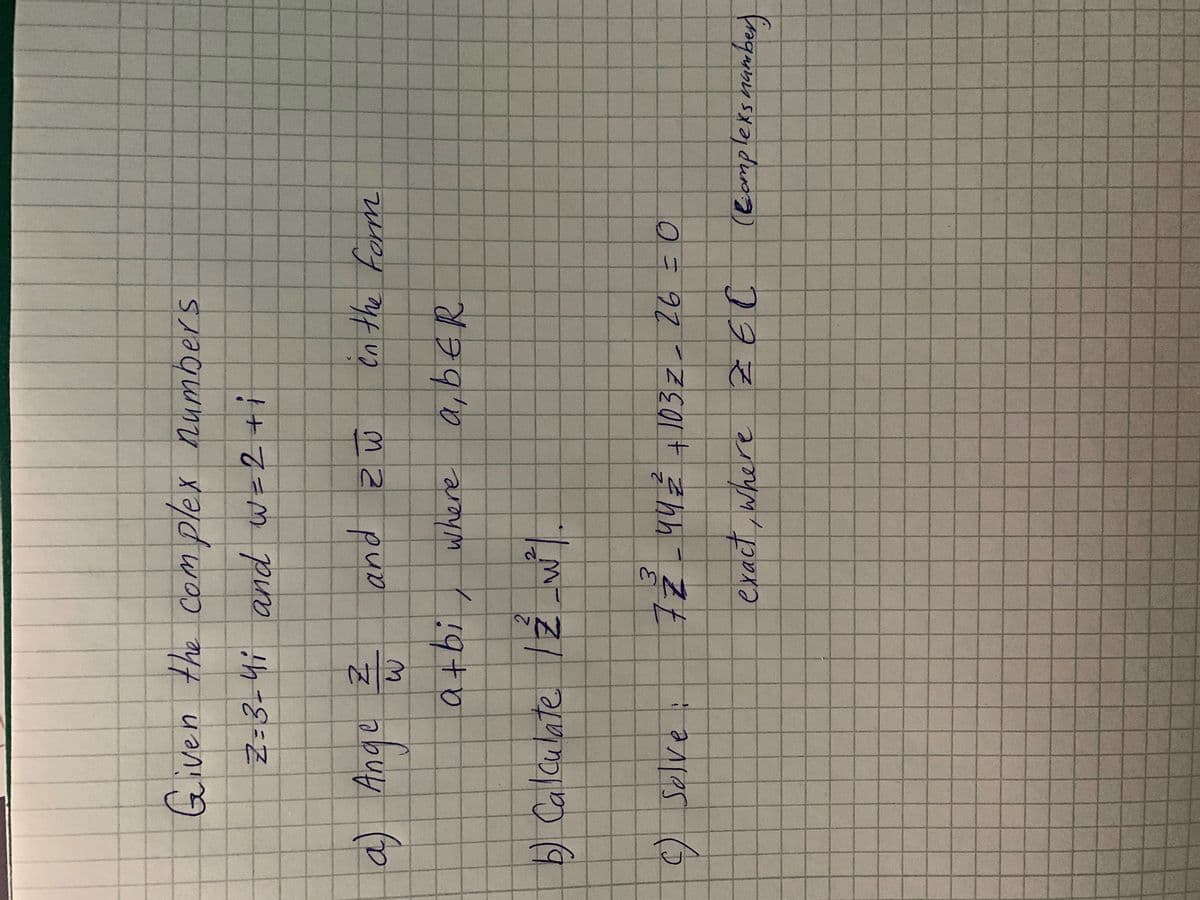 Given the complex numbers
z=3-4i and w=2+i
a) Ange z/w and z w̅ in the form
a+bi, where a,b∈R
b) Calculate |z²-w²|.
c) Solve: 7z³-44z²+103z-26=0
exact, where z∈C (Complexsnumber)